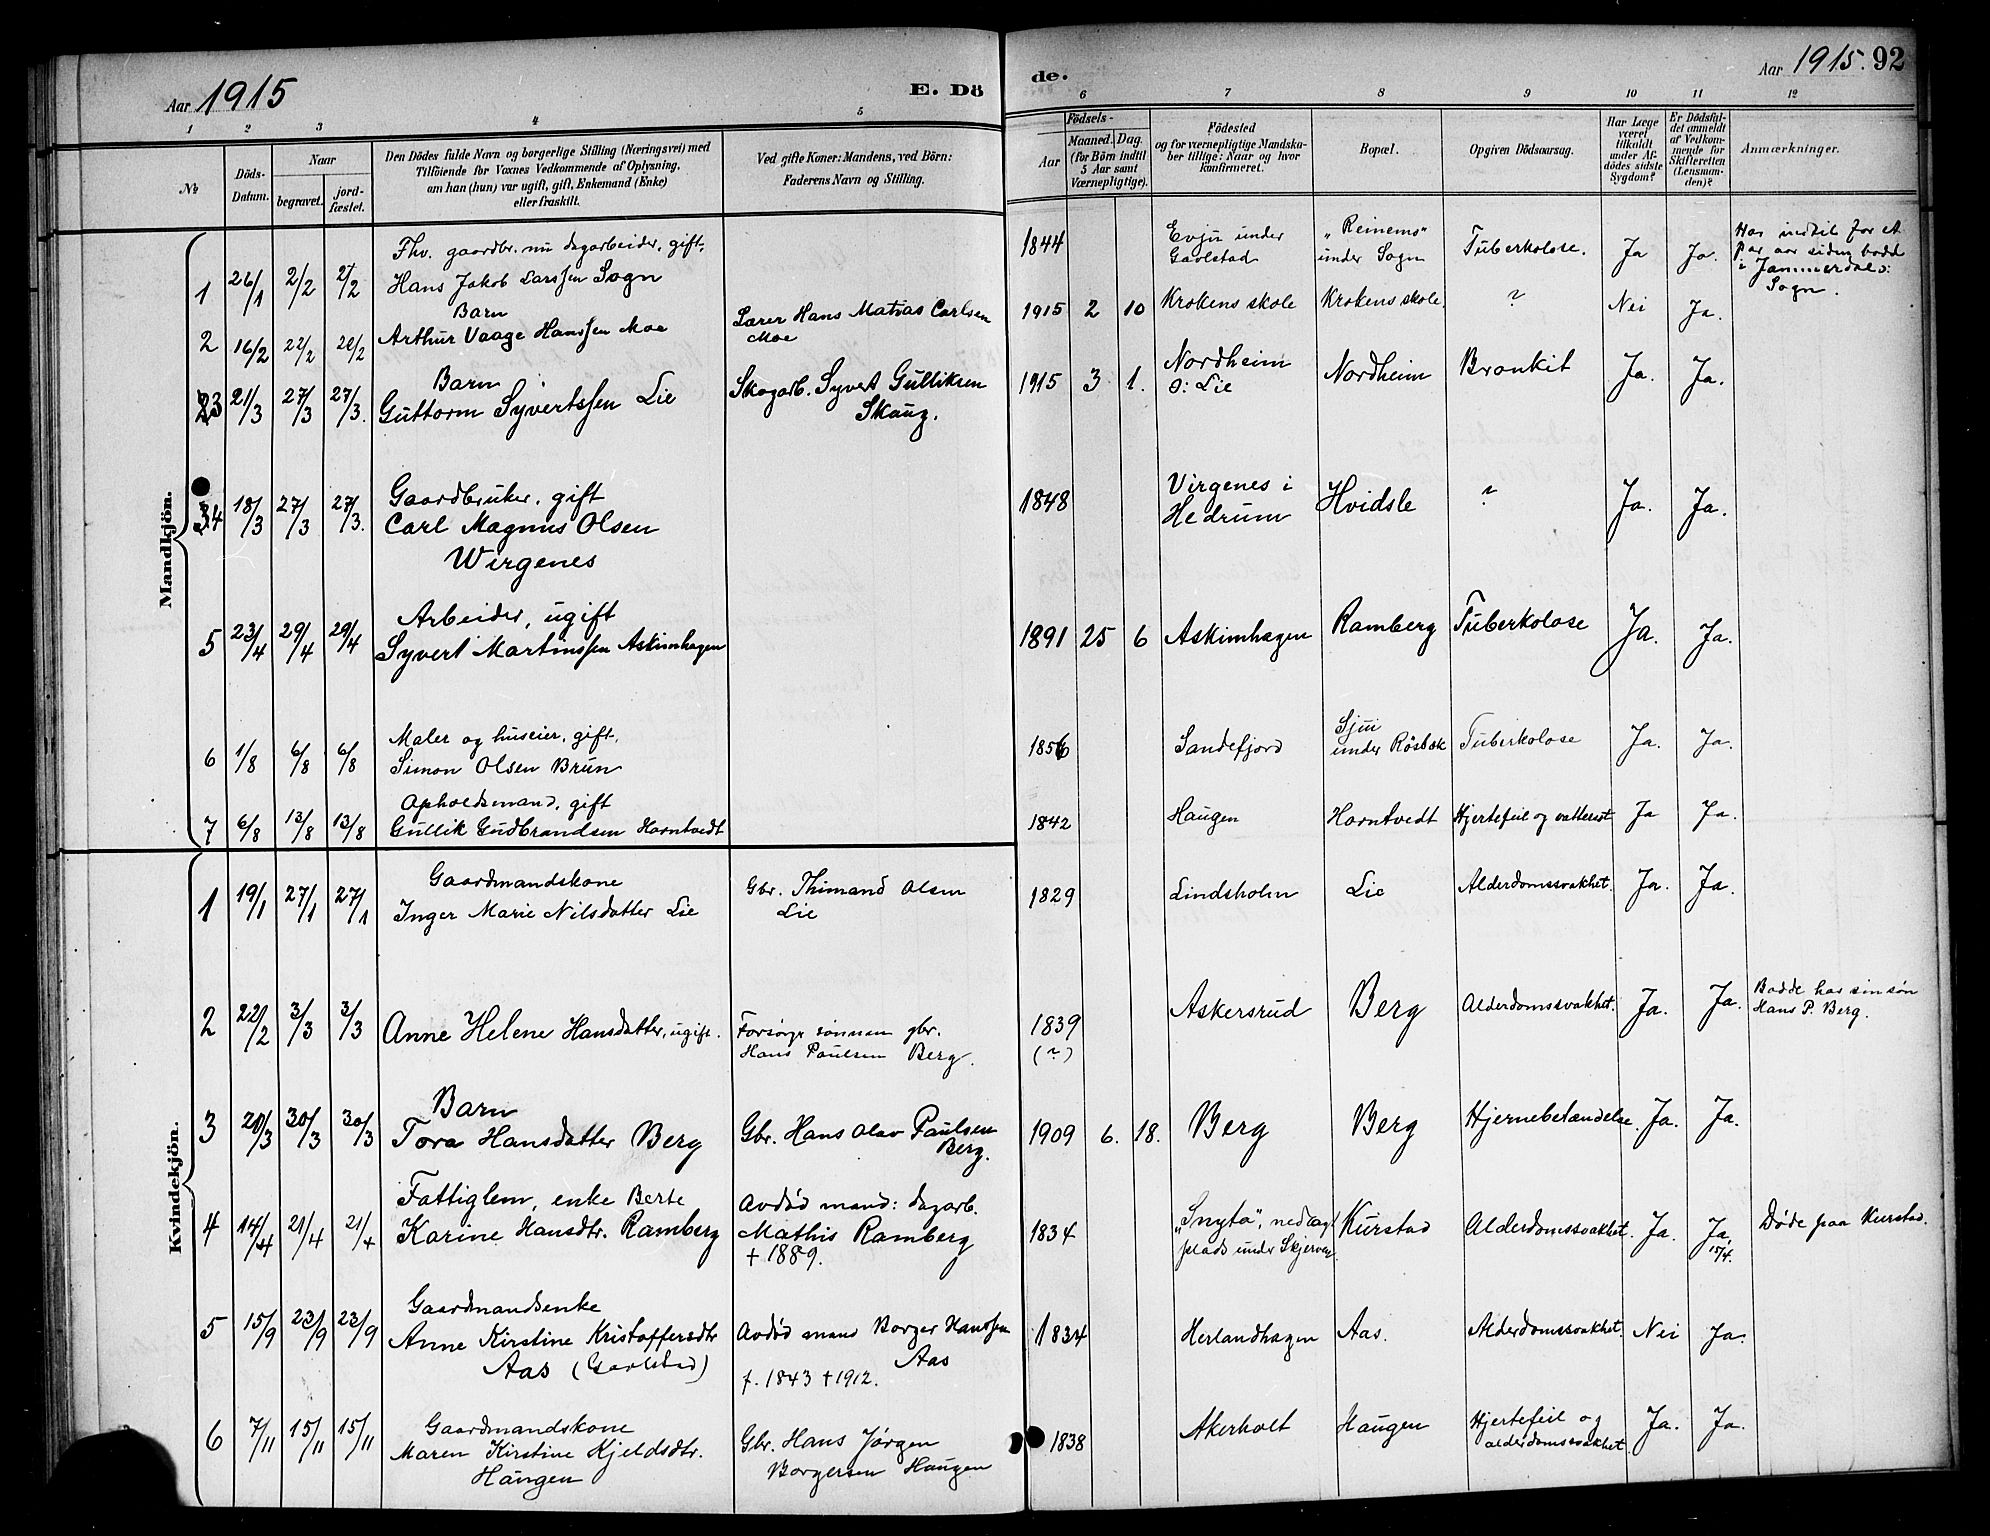 Aar 1915
E. Dö
de.
Aar 1915. 92
1 2 3 4 5 6 7 8 9 10 11 12
№
Döds-
Datum.
Naar
begravet.
jord-
fæstet.
Den Dödes fulde Navn og borgerlige Stilling (Næringsvei) med
Tilföiende for Voxnes Vedkommende af Oplysning,
om han (hun) var ugift, gift, Enkemand (Enke)
eller fraskilt.
Ved gifte Koner: Mandens, ved Börn:
Faderens Navn og Stilling.
Födsels-
Aar
Maaned. Dag.
(for Börn indtil
5 Aar samt
Værnepligtige).
Födested
og for værnepligtige Mandska-
ber tillige: Naar og hvor
konfirmeret.
Bopæl.
Opgiven Dödsaarsag.
Har Læge
været
tilkaldt
under Af-
dödes sidste
Sygdom?
Er Dödsfal-
det anmeldt
af Vedkom-
mende for
Skifteretten
(Lensman-
den)?
Anmærkninger.
Mandkjön.
Fhv. gaardbr. nu dagarbeider, gift.
1 26/1 2/2 2/2 Hans Jakob Larssen Sogn
1844 Evju under
Gavlstad
"Reinems"
under Sogn
Tuberkolose. Ja Ja.
Har indtil for et
Par aar siden bodd
i Jammerdal o:
Sogn.
Barn
2 16/2 22/2 22/2 Arthur Vaage Hanssen Moe
Lærer Hans Matias Carlsen
Moe
1915 2 10 Krokens skole Krokens skole. ? Nei Ja.
Barn
3 21/3 27/3 27/3. Guttorm Syvertssen Lie
Skogarb. Syvert Gulliksen
Skaug.
1915 3 1. Nordheim
o: Lie
Nordheim Bronkit Ja. Ja.
Gaardbruker, gift
4 18/3 27/3 27/3. Carl Magnus Olsen
Wirgenes
1848 Virgenes i
Hedrum
Hvidsle ? Ja. Ja.
Arbeider, ugift
5 23/4 29/4 29/4 Syvert Martinssen Askimhagen
1891 25 6 Askimhagen Ramberg Tuberkolose Ja. Ja.
Maler og huseier, gift.
6 1/8 6/8 6/8 Simon Olsen Brun
1856 Sandefjord
Sjui
under Røsbæk
Tuberkolose Ja. Ja.
Opholdsmand, gift
7 6/8 13/8 13/8 Gullik Gudbrandsen Horntvedt
1842 Haugen Horntvedt Hjertefeil og vattersot Ja Ja.
Kvindekjön.
Gaardmandskone
1 19/1 27/1 27/1 Inger Marie Nilsdatter Lie
Gbr. Thimand Olsen
Lie
1829 Lindsholm Lie Alderdomssvakhet. Ja. Ja.
2 22/2 3/3 3/3 Anne Helene Hansdatter, ugift.
Forsørge sønnen gbr.
Hans Paulsen Berg.
1839
(?)
Askersrud Berg Alderdomssvakhet. Ja. Ja.
Bodde hos sin søn
Hans P. Berg.
Barn
3 20/3 30/3 30/3 Tora Hansdatter Berg
Gbr. Hans Olav Paulsen
Berg.
1909 6. 18. Berg Berg Hjernebetændelse. Ja. Ja.
Fattiglem, enke Berte
4 14/4 21/4 21/4 Karine Hansdtr. Ramberg
Avdød mand: dagarb.
Mathis Ramberg
† 1889.
1834 "Snyta", nedlagt
plads under Skjerven
Kurstad Alderdomssvakhet. Ja. Ja.
15/4.
Døde paa Kurstad.
Gaardmandsenke
5 15/9 23/9 23/9 Anne Kirstine Kristoffersdtr
Aas (Gavlstad)
Avdød mand Borger Hanssen
Aas
f. 1843 † 1912.
1834 Herlandhagen Aas. Alderdomssvakhet. Nei Ja.
Gaardmandskone
6 7/11 15/11 15/11 Maren Kirstine Kjeldsdtr.
Haugen
Gbr. Hans Jørgen
Borgersen Haugen
1838 Akerholt Haugen Hjertefeil og
alderdomssvakhet.
Ja. Ja.